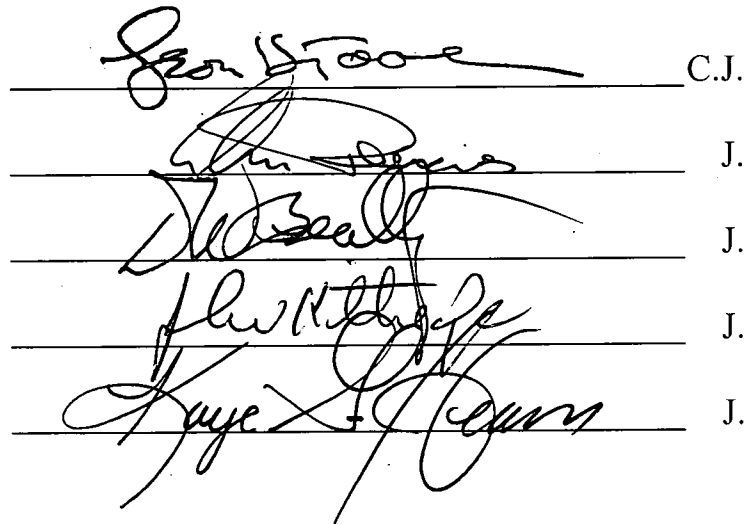 Jean H Toal C.J.
J.
Beatty J.
John Kittredge J.
Kaye G Hearn J.